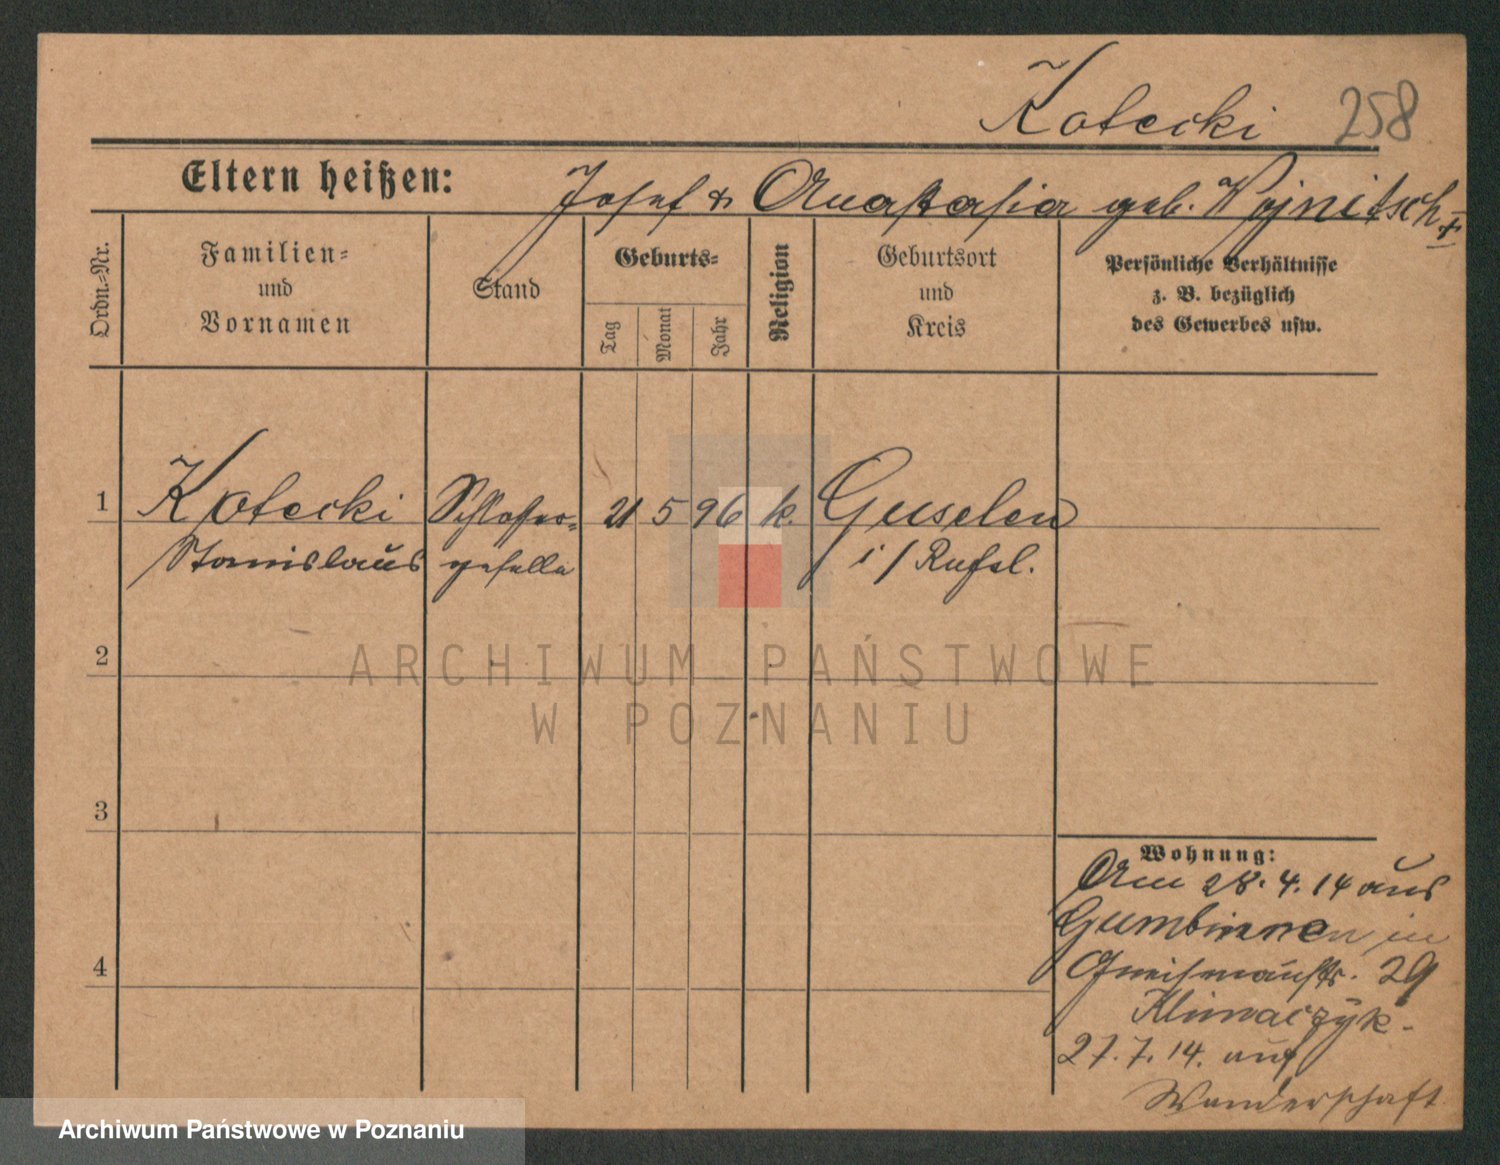 Kotecki 258
Eltern heißen: Josef & Anastasia geb. Wojnitsch
Ordn.-Nr.
Familien-
und
Vornamen
Stand
Geburts-
Tag
Monat
Jahr
Religion
Geburtsort
und
Kreis
Persönliche Verhältnisse
z. B. bezüglich
des Gewerbes usw.
1 Kotecki Schlosser- 21 5 96 k. Guselen
Stanislaus geselle i/Rußl.
2
ARCHIWUM PAŃSTWOWE
W POZNANIU
3
Wohnung:
Am 28.4.14 aus
Gumbinnen in
Gneisenaustr. 29
Klimaczyk.
4
27.7.14. auf
Wanderschaft
Archiwum Państwowe w Poznaniu